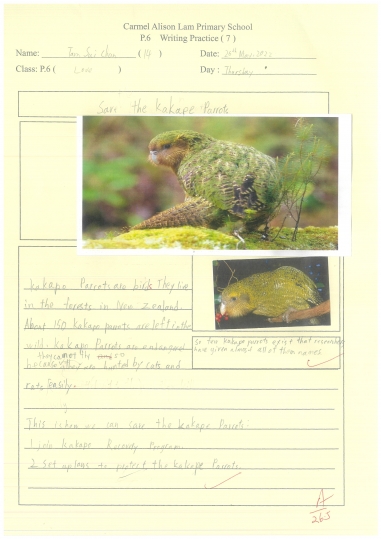 Carmel Alison Lam Primary School
P.6 Writing Practice ( 7 )
Name: ( 14 ) Date:
Class: P.6 ( Love ) Day : Thursday
Save the Kakapo Parrots
Kakapo Parrots are birds. They live
in the forests in New Zealand.
About 150 kakapo parrots are left in the
wild. Kakapo Parrots are endangered
because they are hunted by cats and
rats easily.
so kakapo parrots exist that
have given almost all of them names
This is how we can save the Kakapo Parrots:
1. join Kakapo Recovery Program.
2. Set up laws to protect the kakapo Parrots.
A
265